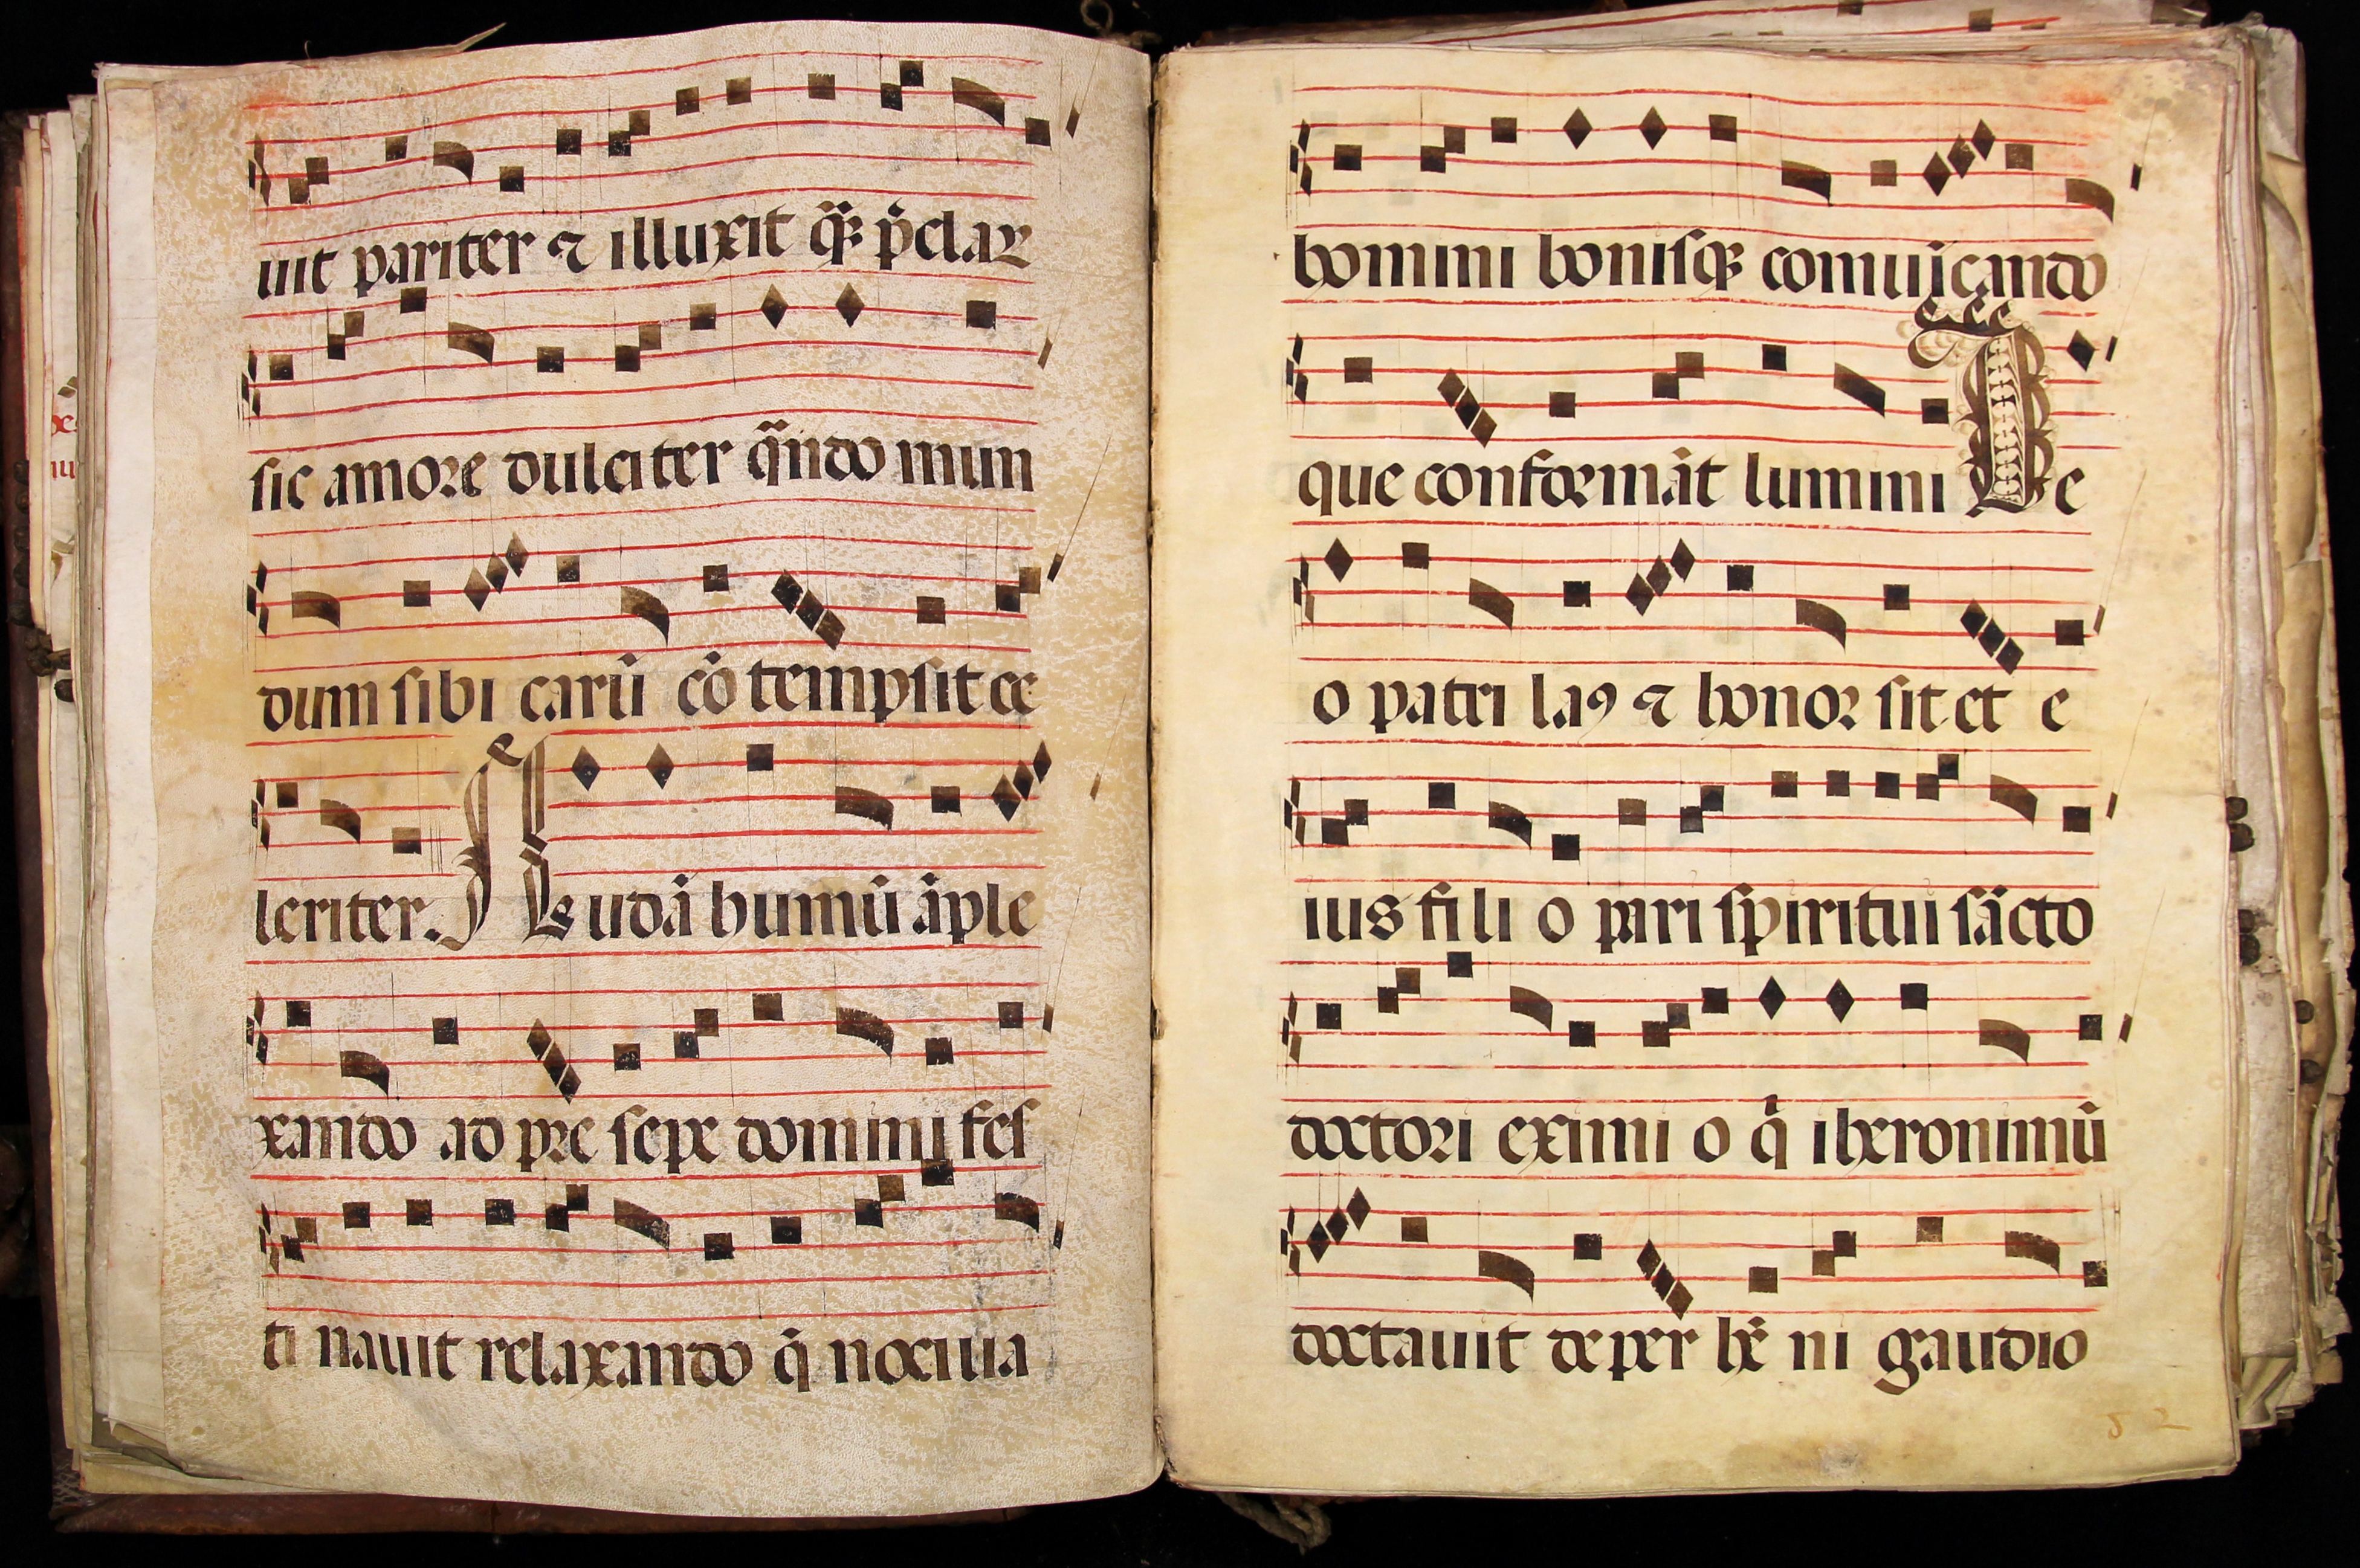 uit pariter ⁊ illuxit q̃ꝫ p̃claꝝ
sic amore dulciter q̃ndo mun
dum sibi carũ cõtempsit ce
leriter. Nudã humũ ãple
xando ad presepe domini fes
tinauit relaxando q̃ nociuia
homini bonisqꝫ comuĩcando
que conformãt lumini De
o patri laꝯ ⁊ honor sit et e
ius fili o pari spiritui sãcto
doctori eximi o q̃ iheronimũ
doctauit de perhẽni gaudio
52